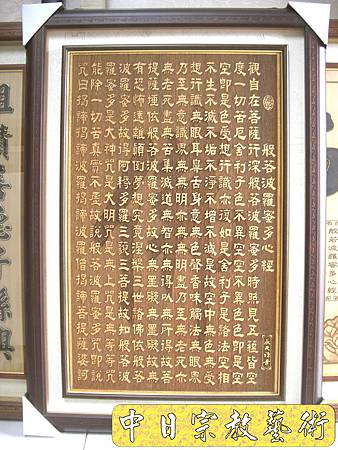 般若波羅蜜多心經
觀自在菩薩行深般若波羅蜜多時照見五蘊皆空
度一切苦厄舍利子色不異空空不異色色即是空
空即是色受想行識亦復如是舍利子是諸法空相
不生不滅不垢不淨不增不減是故空中無色無受
想行識無眼耳鼻舌身意無色聲香味觸法無眼界
乃至無意識界無無明亦無無明盡乃至無老死亦
無老死盡無苦集滅道無智亦無得以無所得故菩
提薩埵依般若波羅蜜多故心無罣礙無罣礙故無
有恐怖遠離顛倒夢想究竟涅槃三世諸佛依般若
波羅蜜多故得阿耨多羅三藐三菩提故知般若波
羅蜜多是大神咒是大明咒是無上咒是無等等咒
能除一切苦真實不虛故說般若波羅蜜多咒即說
咒曰揭諦揭諦波羅揭諦波羅僧揭諦菩提薩婆訶
般若波羅蜜多心經
子孫興
中日宗教藝術